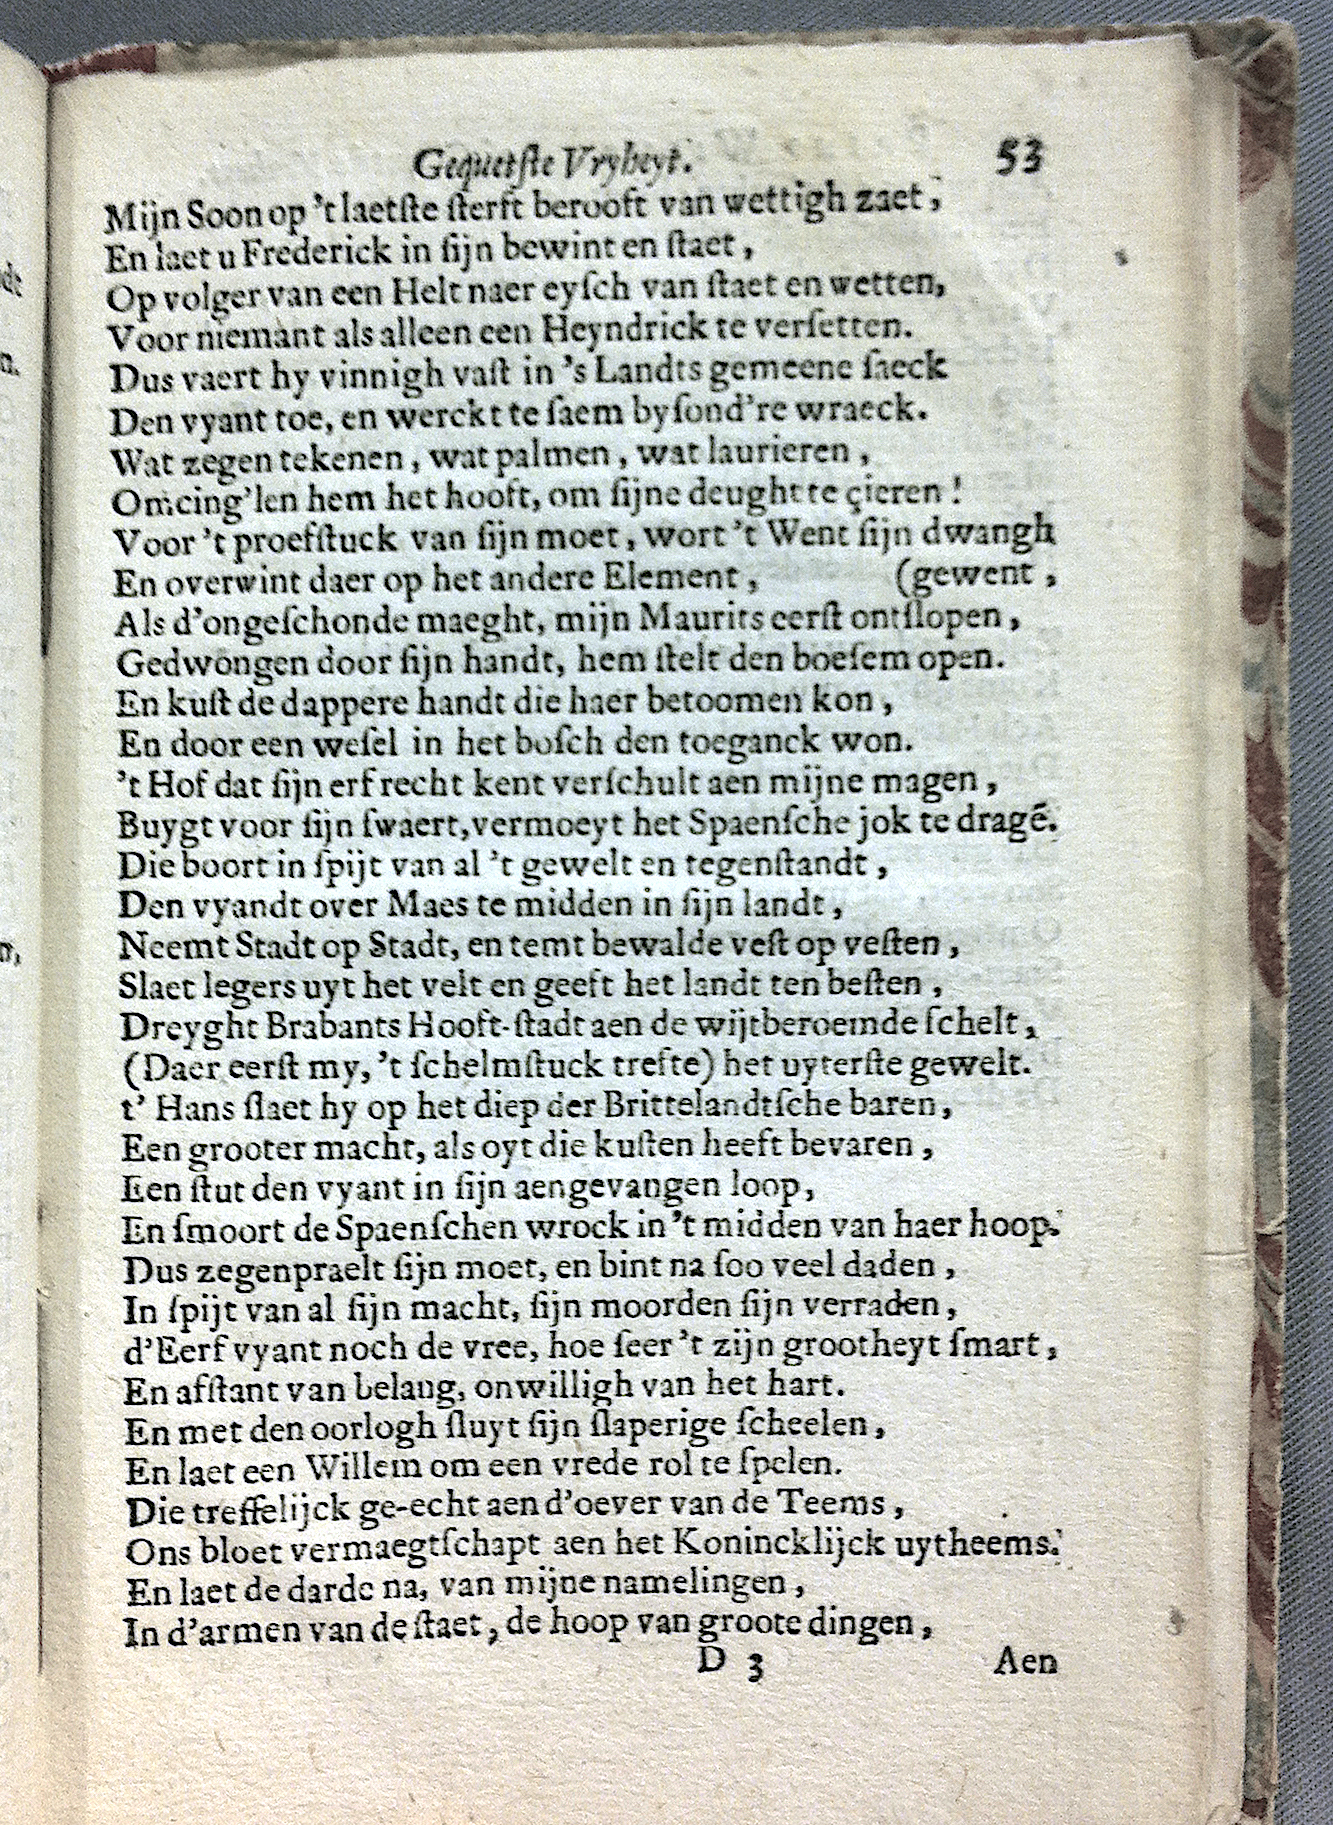 Gequetſte Vryheyt. 53
Mijn Soon op 't laetſte ſterft berooft van wettigh zaet,
En laet u Frederick in ſijn bewint en ſtaet,
Op volger van een Helt naer eyſch van ſtaet en wetten,
Voor niemant als alleen een Heyndrick te verſetten.
Dus vaert hy vinnigh vaſt in 's Landts gemeene ſaeck
Den vyant toe, en werckt te ſaem byſond're wraeck.
Wat zegen tekenen, wat palmen, wat laurieren,
Omcing'len hem het hooft, om ſijne deught te çieren!
Voor 't proefſtuck van ſijn moet, wort 't Went ſijn dwangh
En overwint daer op het andere Element, (gewent,
Als d'ongeſchonde maeght, mijn Maurits eerſt ontſlopen,
Gedwongen door ſijn handt, hem ſtelt den boeſem open.
En kuſt de dappere handt die haer betoomen kon,
En door een weſel in het boſch den toeganck won.
't Hof dat ſijn erfrecht kent verſchult aen mijne magen,
Buygt voor ſijn ſwaert, vermoeyt het Spaenſche jok te dragẽ.
Die boort in ſpijt van al 't gewelt en tegenſtandt,
Den vyandt over Maes te midden in ſijn landt,
Neemt Stadt op Stadt, en temt bewalde veſt op veſten,
Slaet legers uyt het velt en geeft het landt ten beſten,
Dreyght Brabants Hooft-ſtadt aen de wijtberoemde ſchelt,
(Daer eerſt my, 't ſchelmſtuck trefte) het uyterſte gewelt.
t' Hans ſlaet hy op het diep der Brittelandtſche baren,
Een grooter macht, als oyt die kuſten heeft bevaren,
Een ſtut den vyant in ſijn aengevangen loop,
En ſmoort de Spaenſchen wrock in 't midden van haer hoop.
Dus zegenpraelt ſijn moet, en bint na ſoo veel daden,
In ſpijt van al ſijn macht, ſijn moorden ſijn verraden,
d'Eerfvyant noch de vree, hoe ſeer 't zijn grootheyt ſmart,
En afſtant van belang, onwilligh van het hart.
En met den oorlogh ſluyt ſijn ſlaperige ſcheelen,
En laet een Willem om een vrede rol te ſpelen.
Die treffelijck ge-echt aen d'oever van de Teems,
Ons bloet vermaegtſchapt aen het Konincklijck uytheems.
En laet de darde na, van mijne namelingen,
In d'armen van de ſtaet, de hoop van groote dingen,
D 3 Aen